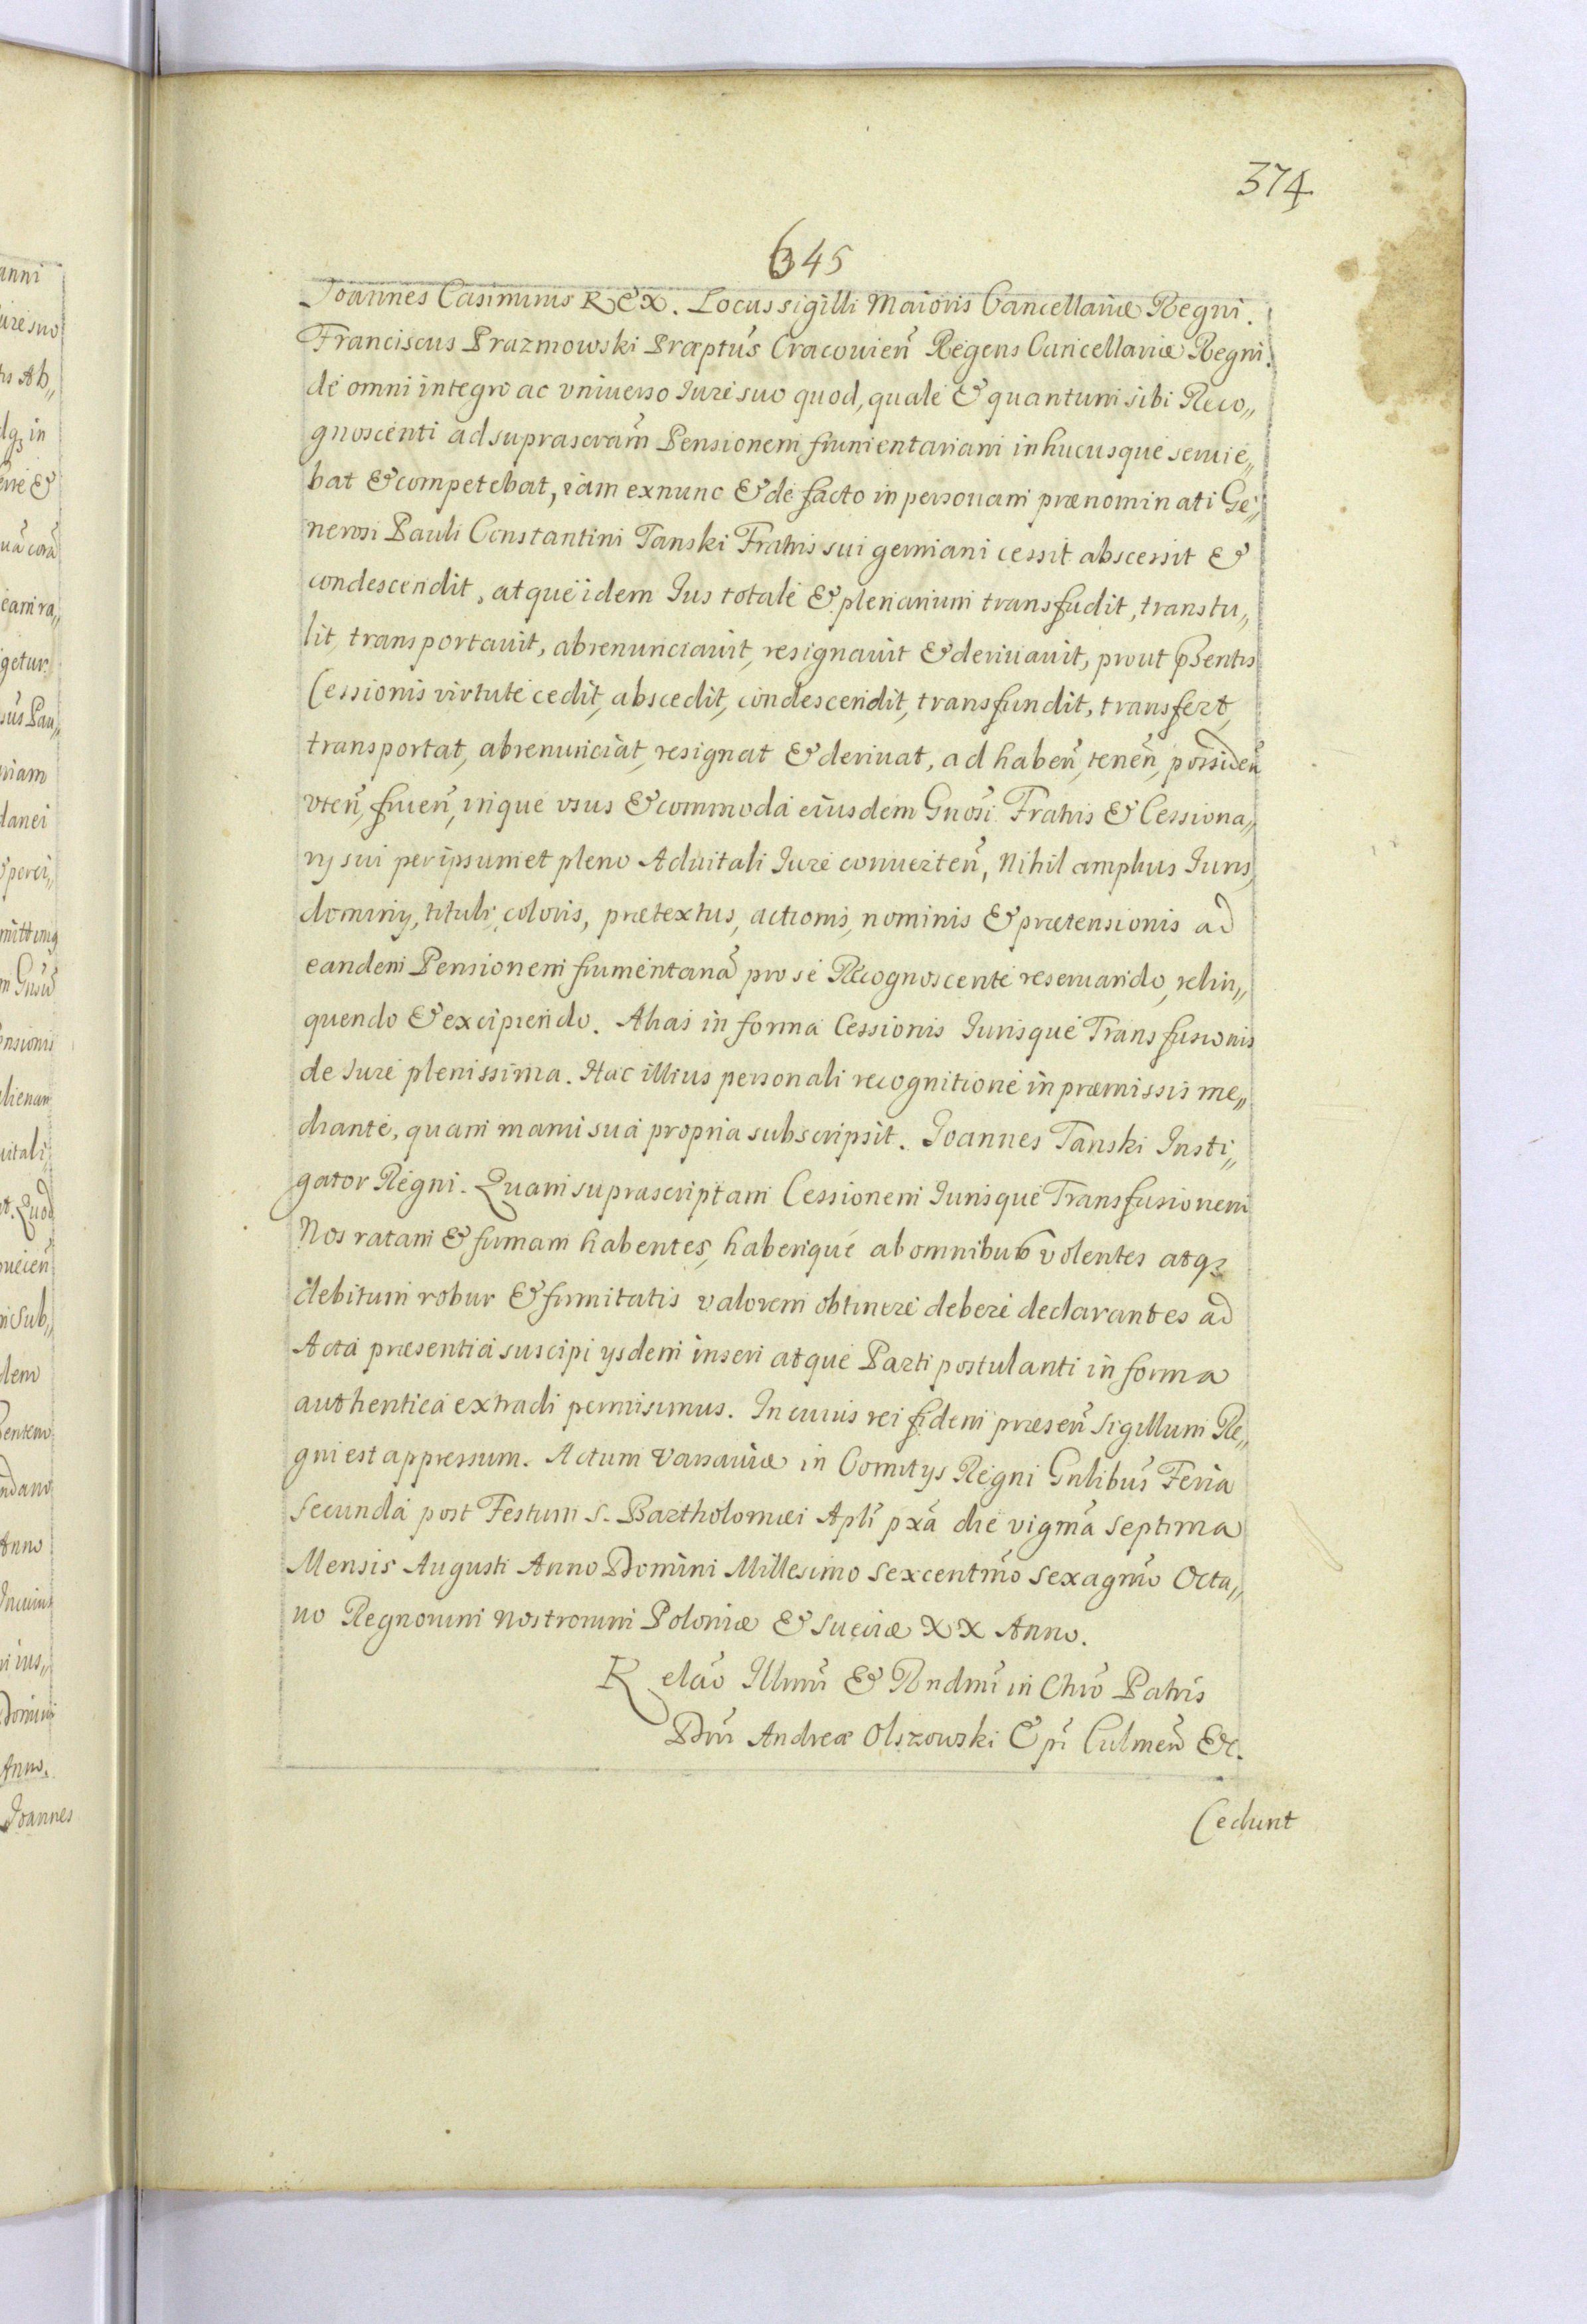 374
645
Joannes Casimirus REX. Locus sigilli Maioris Cancellariæ Regni.
Franciscus Prazmowski Præptûs Cracouien̄ Regens Cancellariæ Regni.
de omni integro ac vniuerso Jure suo quod, quale & quantum sibi Reco„
gnoscenti ad suprascram̄ Pensionem frumentariam in hucusque seruie„
bat & competebat, iam ex nunc & de facto in personam prænominati Ge„
nerosi Pauli Constantini Tanski Fratris sui germani cessit abscessit &
condescendit, atque idem Jus totale & plenarium transfudit, transtu„
lit, transportauit, abrenunciauit, resignauit & deriuauit, prout pñsentis
Cessionis virtute cedit, abscedit, condescendit, transfundit, transfert,
transportat, abrenunciat, resignat & deriuat, ad haben̄, tenen̄, possiden̄
vten̄, fruen̄, inque vsus & commoda eiusdem Gnosi Fratris & Cessiona„
rij sui per ipsummet pleno Aduitali Jure conuerten̄, Nihil amplius Juris,
dominij, tituli, coloris, prætextus, actionis, nominis & prætensionis ad
eandem Pensionem frumentariā pro se Recognoscente reseruando, relin„
quendo & excipiendo. Alias in forma Cessionis Jurisque Transfusionis
de Jure plenissima. Hac illius personali recognitione in præmissis me„
diante, quam manu sua propria subscripsit. Joannes Tanski Insti„
gator Regni. Quam suprascriptam Cessionem Jurisque Transfusionem
Nos ratam & firmam habentes, haberique ab omnibus volentes atq3
debitum robur & firmitatis valorem obtinere debere declarantes ad
Acta præsentia suscipi ysdem inseri atque Parti postulanti in forma
authentica extradi permisimus. In cuius rei fidem præsen̄ Sigillum Re„
gni est appressum. Actum Varsauiæ in Comitys Regni Gnlibus Feria
Secunda post Festum S. Bartholomæi Apli pxā die vigmā Septima
Mensis Augusti Anno Domini Millesimo Sexcentmō Sexagmō Octa„
uo Regnorum nostrorum Poloniæ & Sueciæ XX Anno.
Relaō Illmi & Rndmi in Chrō Patris
Dni Andreæ Olszowski Epi Culmen̄ &c.
Cedunt